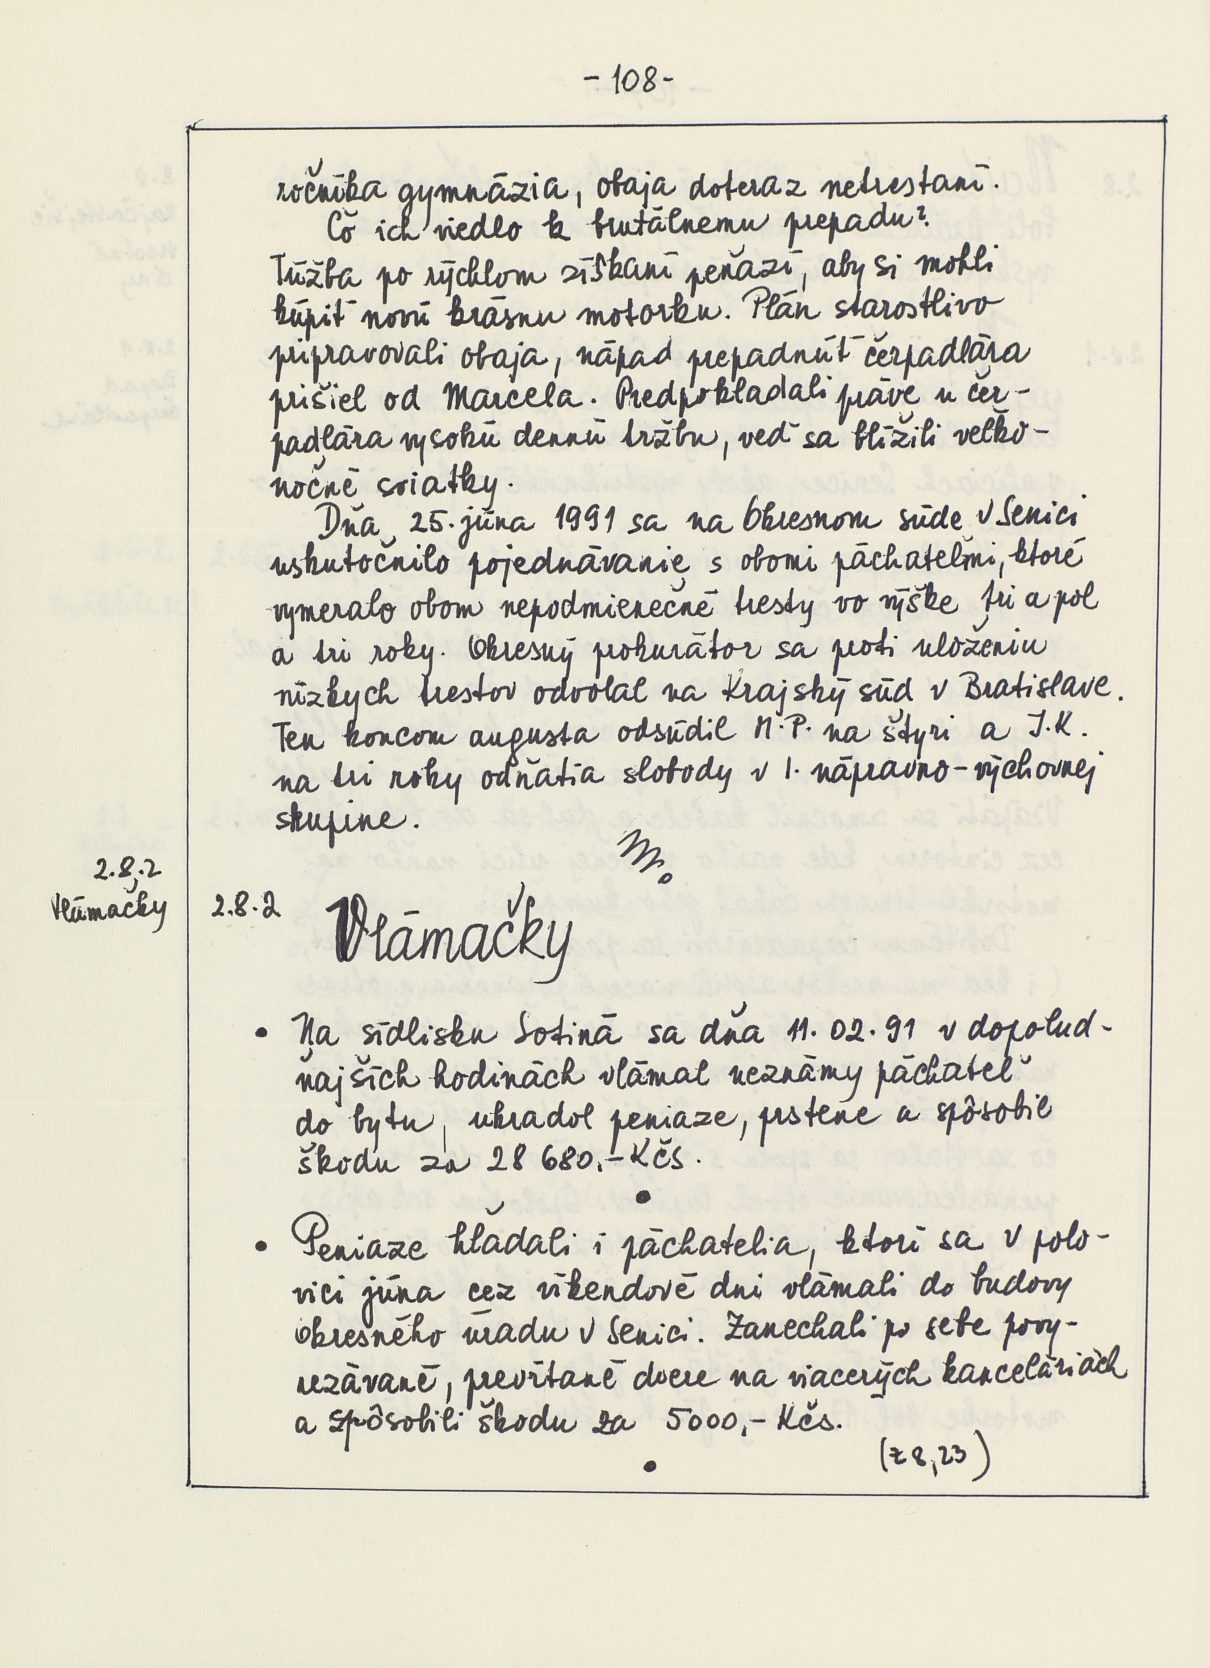 - 108 -
ročníka gymnázia, obaja doteraz netrestaní.
Čo ich viedlo k brutálnemu prepadu?
Túžba po rýchlom získaní peňazí, aby si mohli
kúpiť novú krásnu motorku. Plán starostlivo
pripravovali obaja, nápad prepadnúť čerpadlára
prišiel od Marcela. Predpokladali práve u čer-
padlára vysokú dennú tržbu, veď sa blížili veľko-
nočné sviatky.
Dňa 25. júna 1991 sa na Okresnom súde v Senici
uskutočnilo pojednávanie s obomi páchateľmi, ktoré
vymeralo obom nepodmienečné tresty vo výške tri a pol
a tri roky. Okresný prokurátor sa proti uloženiu
nízkych trestov odvolal na Krajský súd v Bratislave.
Ten koncom augusta odsúdil M.P. na štyri a J.K.
na tri roky odňatia slobody v I. nápravno-výchovnej
skupine.
2.8.2
Vlámačky
2.8.2 Vlámačky
• Na sídlisku Sotiná sa dňa 11. 02. 91 v dopolud-
ňajších hodinách vlámal neznámy páchateľ
do bytu, ukradol peniaze, prstene a spôsobil
škodu za 28 680,- Kčs.
• Peniaze hľadali i páchatelia, ktorí sa v polo-
vici júna cez víkendové dni vlámali do budovy
Okresného úradu v Senici. Zanechali po sebe povy-
rezávané, prevŕtané dvere na viacerých kanceláriách
a spôsobili škodu za 5000,- Kčs.
(z 8, 23)